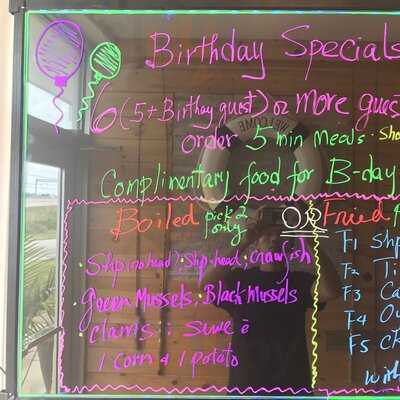 Birthday Specials
6 (5 + Birthay guest) or more gues
order 5 min meals. Sho
WELCOME
Complimentary food for B-day
Boiled pick 2 only OR Fried
· Shp (no head); Shp-head; crawfish
Green Mussels; Black Mussels
· clams;
1 corn & 1 potato
F1 Shp
F2 Ti
F3 Ca
F4 Ou
F5 CR
with